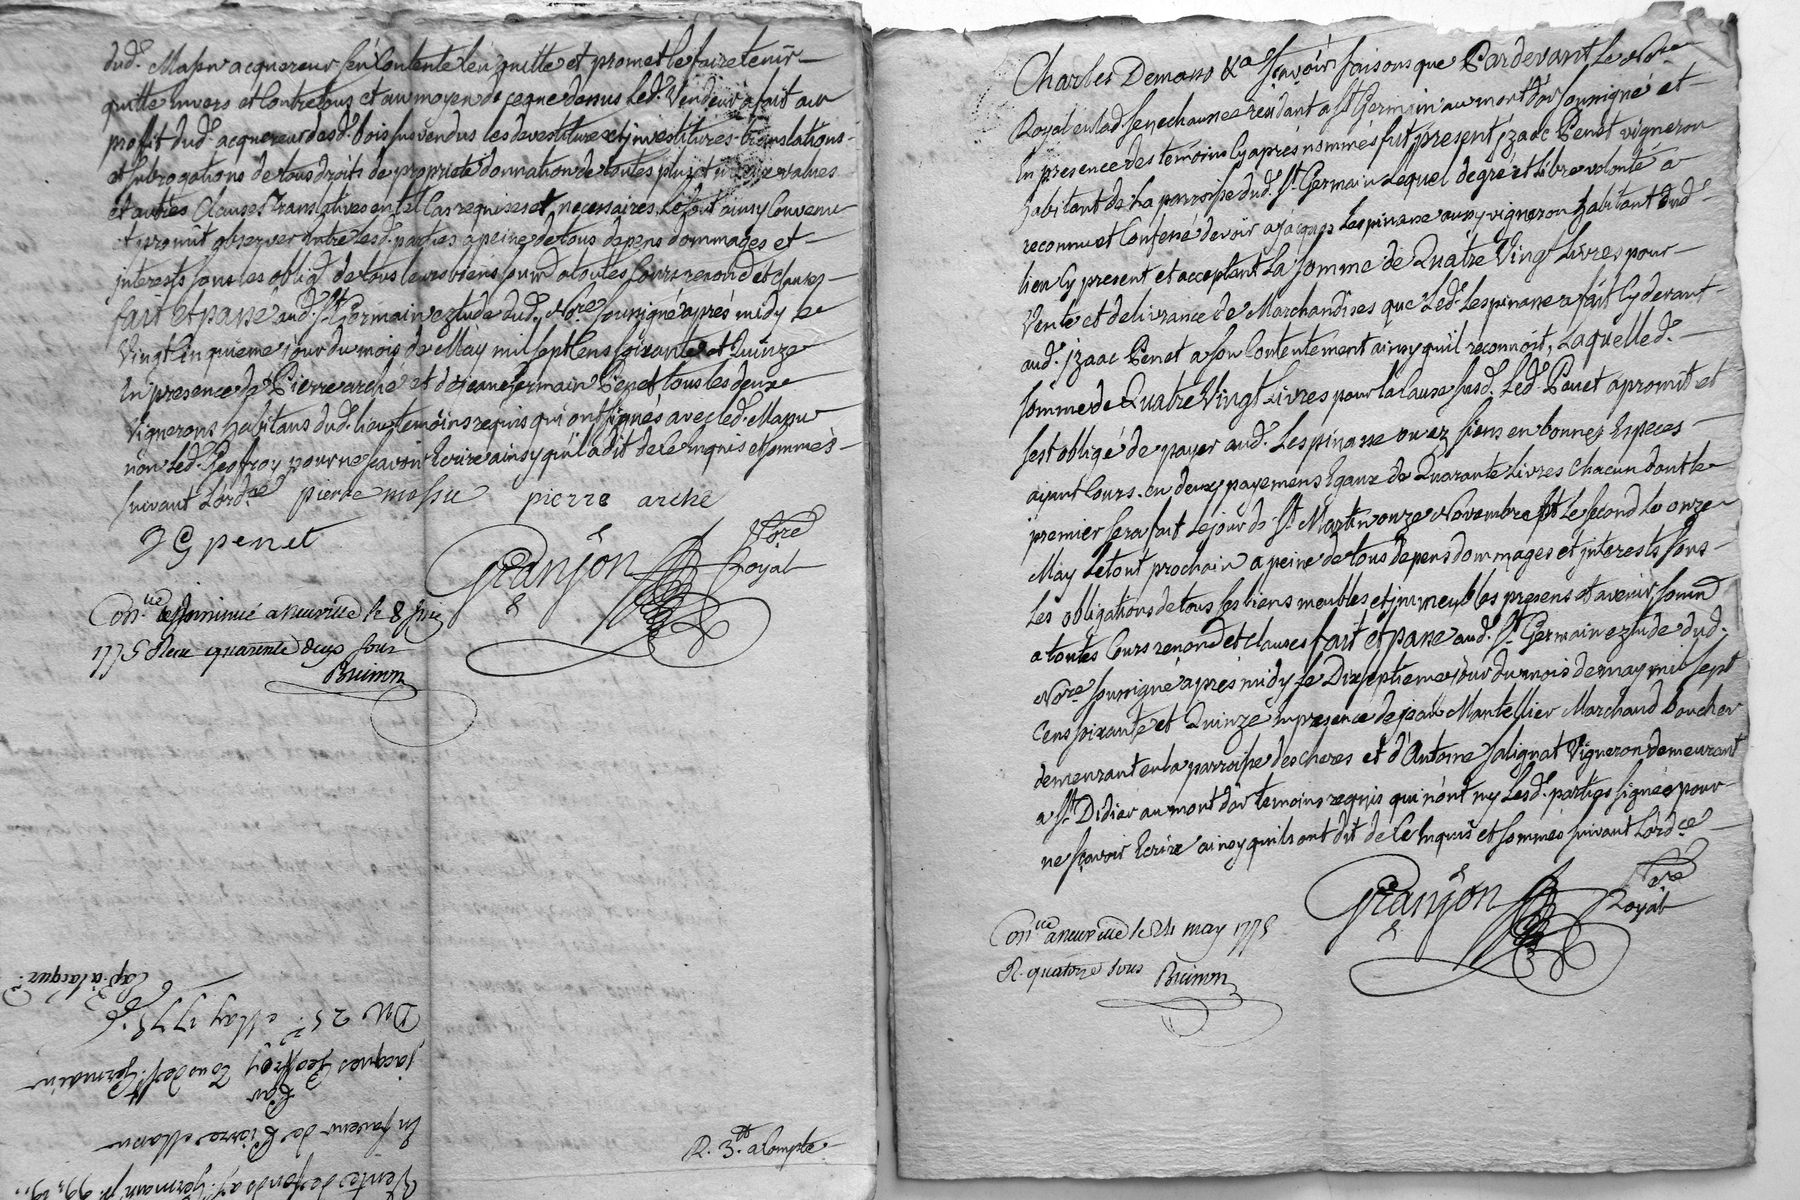 dud. Massu acquereur s'en Contente l'en quitte et promet le faire tenir
quitte envers et Contre tous et au moyen de ce que dessus Led. Vendeur a fait au
profit dud. acquereur desd. bois sus vendus les devestitures et investitures translations
et subrogations de tous droits de proprieté donnation de toutes plus et values
et autres Clauses Translatives en tel Cas requises et necessaires. Le tout ainsy Convenu
et promit observer entre les d. parties a peine de tous depens dommages et
interests sous les oblig. de tous leurs biens soum. a toutes Cours renond. et clauses
fait et passé aud. St Germain eztude dud. Nore. soussigné après midy Le
Vingt Cinquieme jour du mois de May mil sept Cens soixante et Quinze
En presence de Pierre arché et de jean Germain Penet tous les deux
Vignerons habitans dud. lieu temoins requis qui ont signés avec led. Massu
non Led. Geoffroy pour ne scavoir Ecrire ainsy qu'il a dit de ce enquis et sommés
suivant L'ord.ce pierre massu pierre arché
J G penet
Granjon Nore Royal
Con.lle a neuville le 8 juin
1775 Reçu quarente deux sous
Buimn
R. 3.tt a Compte
Exp. a l'acquer.r
Du 25.e May 1775.
jacques Geoffroy de St. Germain
Par
En faveur de Pierre Massu
Vente de fonds a St. Germain
Charles Demasso &a sçavoir faisons que Pardevant Le No.re
Royal en lad. senechaussée residant a St Germain au mont d'or soussigné et
En presence des temoins Cy après nommés fut present jzaac Penet vigneron
habitant de La parroisse dud. St Germain Lequel de gré et Libre volonté a
reconnu et Confessé devoir a jacques Lespinasse aussy vigneron habitant dud.
lieu Cy present et acceptant La somme de Quatre Vingt Livres pour
Vente et delivrance de Marchandises que Led. Lespinasse a fait Cy devant
aud. jzaac Penet a son Contentement ainsy qu'il reconnoit, Laquelle d.
somme de Quatre Vingt Livres pour la Cause susd. Led. Penet a promit et
s'est obligé de payer aud. Lespinasse ou ez siens en bonnes Especes
ayant Cours. en deux payemens Egaux de Quarante Livres chacun dont le
premier sera fait Le jour de St. Martin onze Novembre et Le second Le onze
May Le tout prochain a peine de tous depens dommages et interests sous
Les obligations de tous ses biens meubles et jmmeubles presens et avenir soum.
a toutes Cours renond. et clauses fait et passé aud. St. Germain eztude dud.
Nore. soussigné après midy Le Dix septieme jour du mois de may mil sept
Cens soixante et Quinze En presence de jean Mantellier Marchand boucher
demeurant en la parroisse des cheres et d'Antoine salignat Vigneron demeurant
a St Didier au mont d'or temoins requis qui n'ont ny Lesd. parties signées pour
ne sçavoir Ecrire ainsy qu'ils ont dit de Ce Enquis et sommés suivant L'ord.ce
Granjon Nore Royal
Con.lle a neuville le 24 may 1775
R. quatorze sous
Buimn